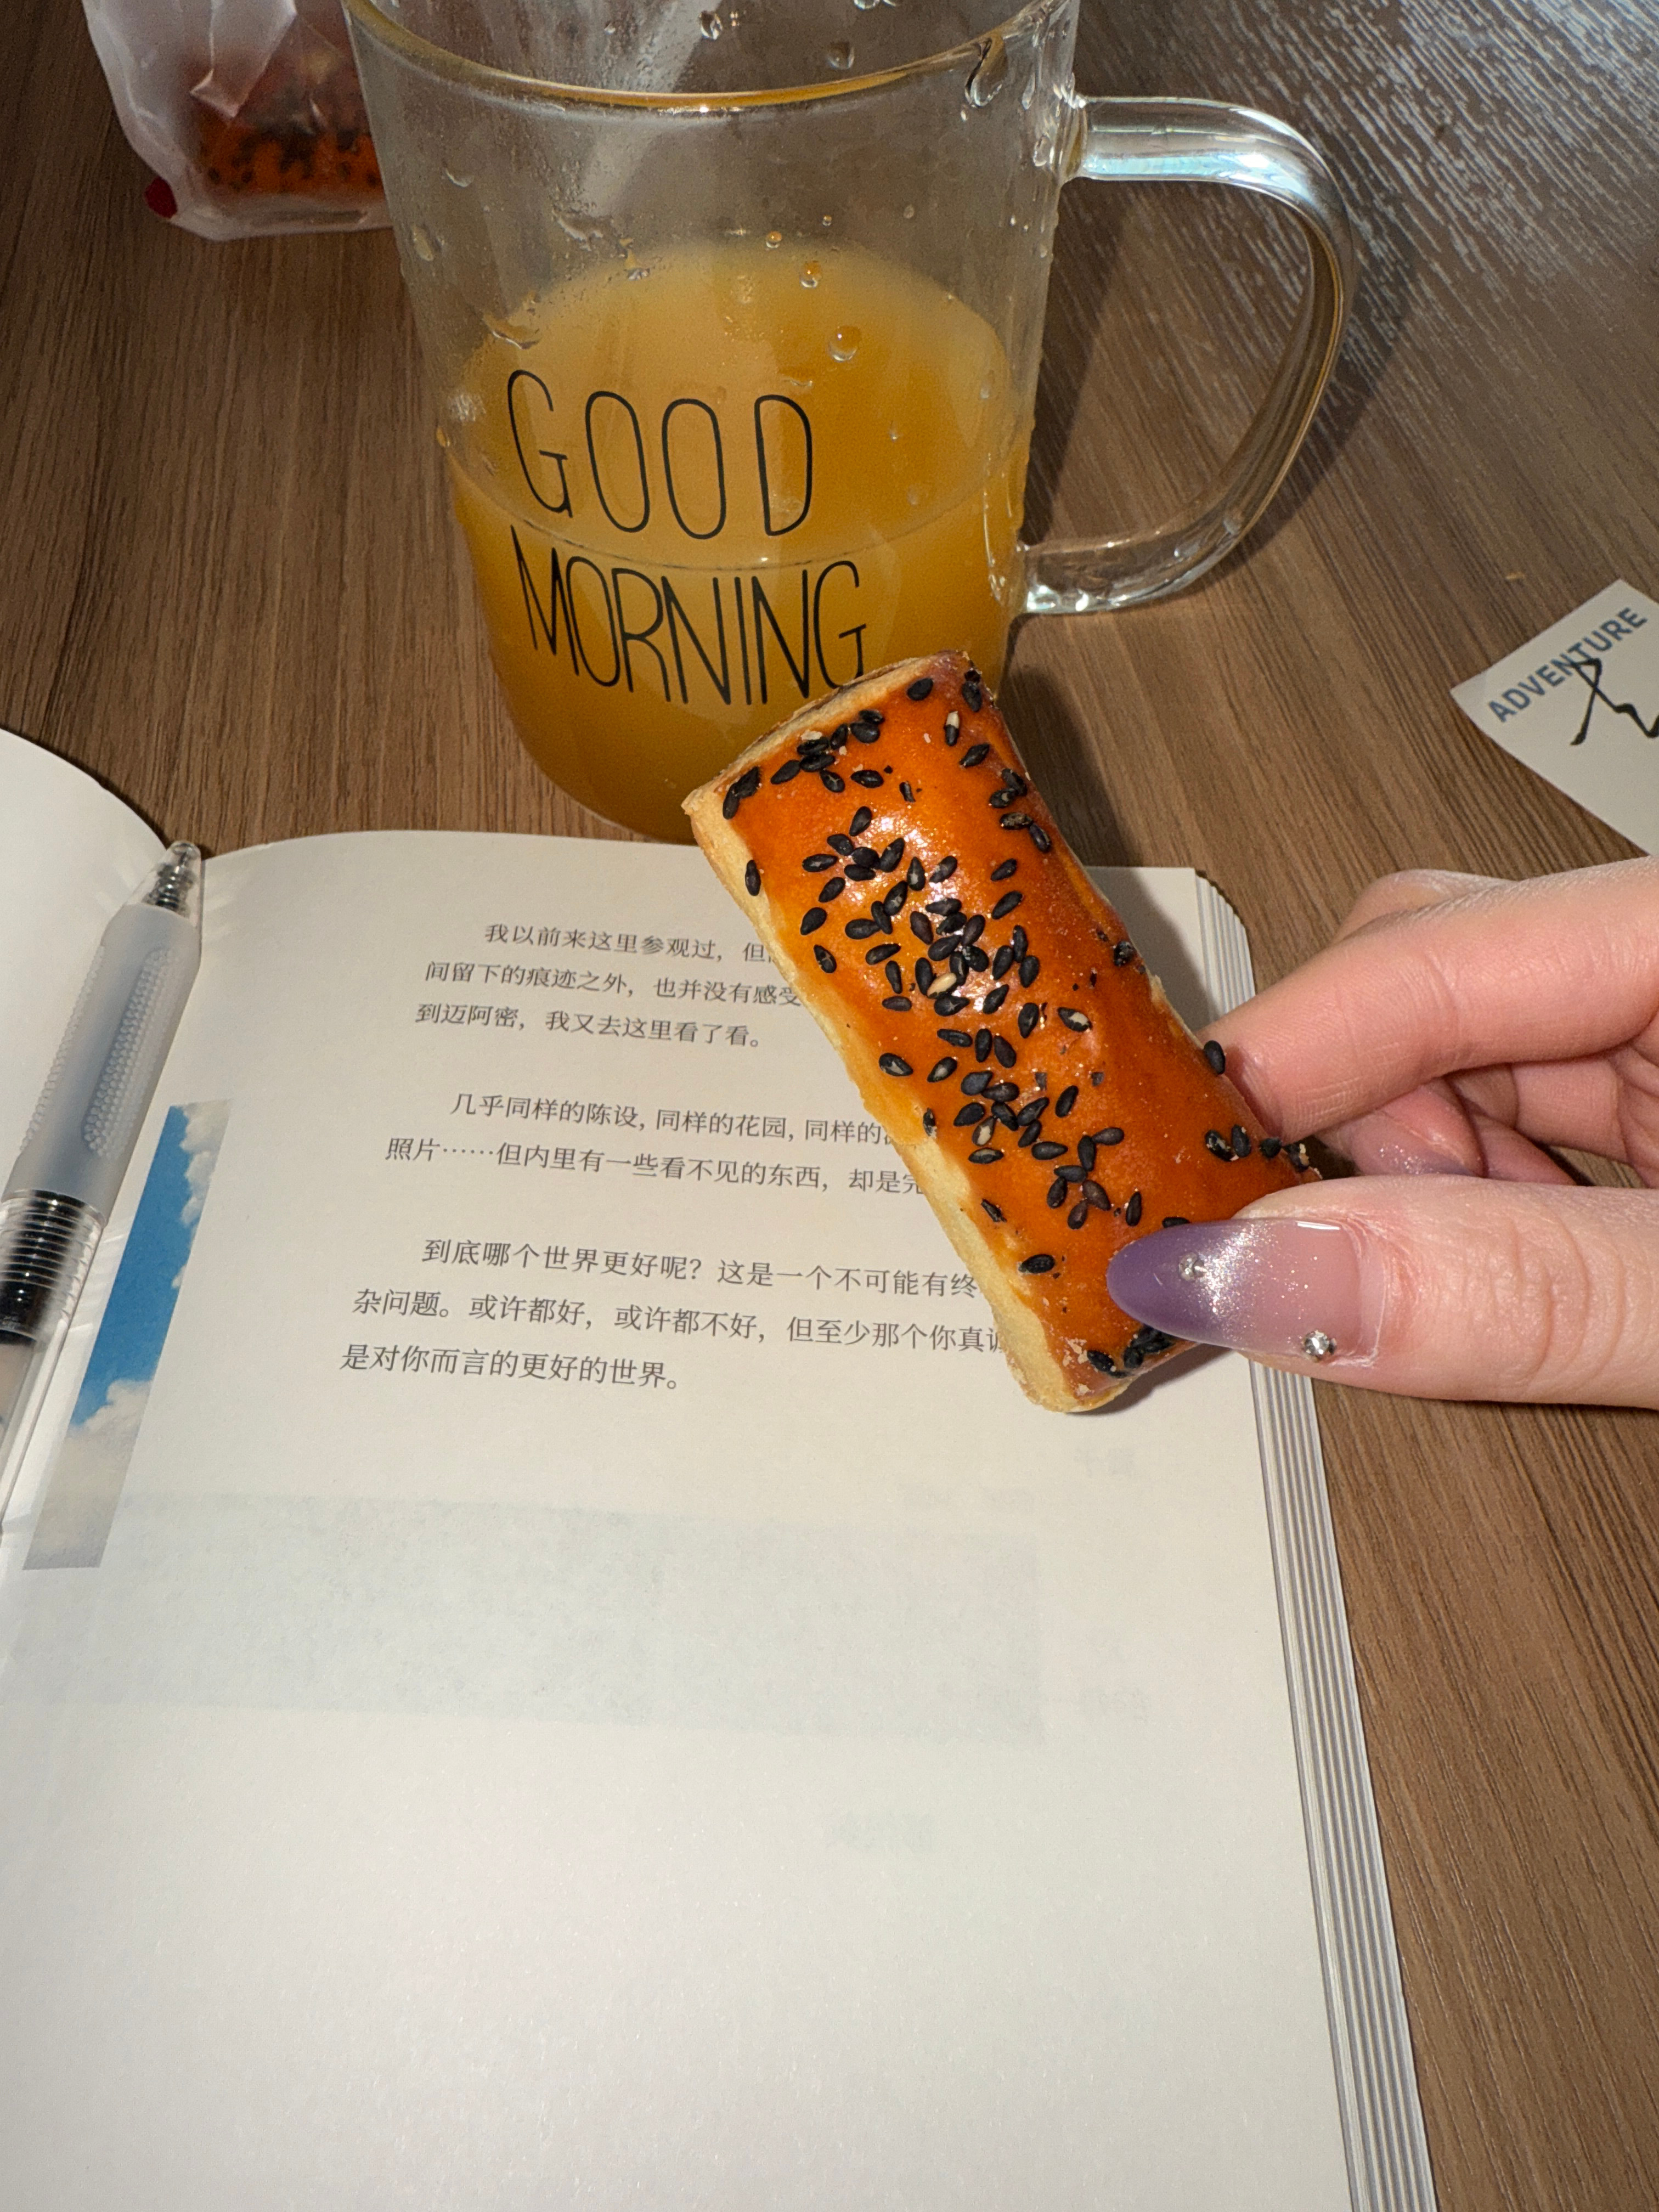 GOOD
MORNING
ADVENTURE
我以前来这里参观过，但
间留下的痕迹之外，也并没有感受
到迈阿密，我又去这里看了看。
几乎同样的陈设，同样的花园，同样的
照片……但内里有一些看不见的东西，却是完
到底哪个世界更好呢？这是一个不可能有终
杂问题。或许都好，或许都不好，但至少那个你真
是对你而言的更好的世界。